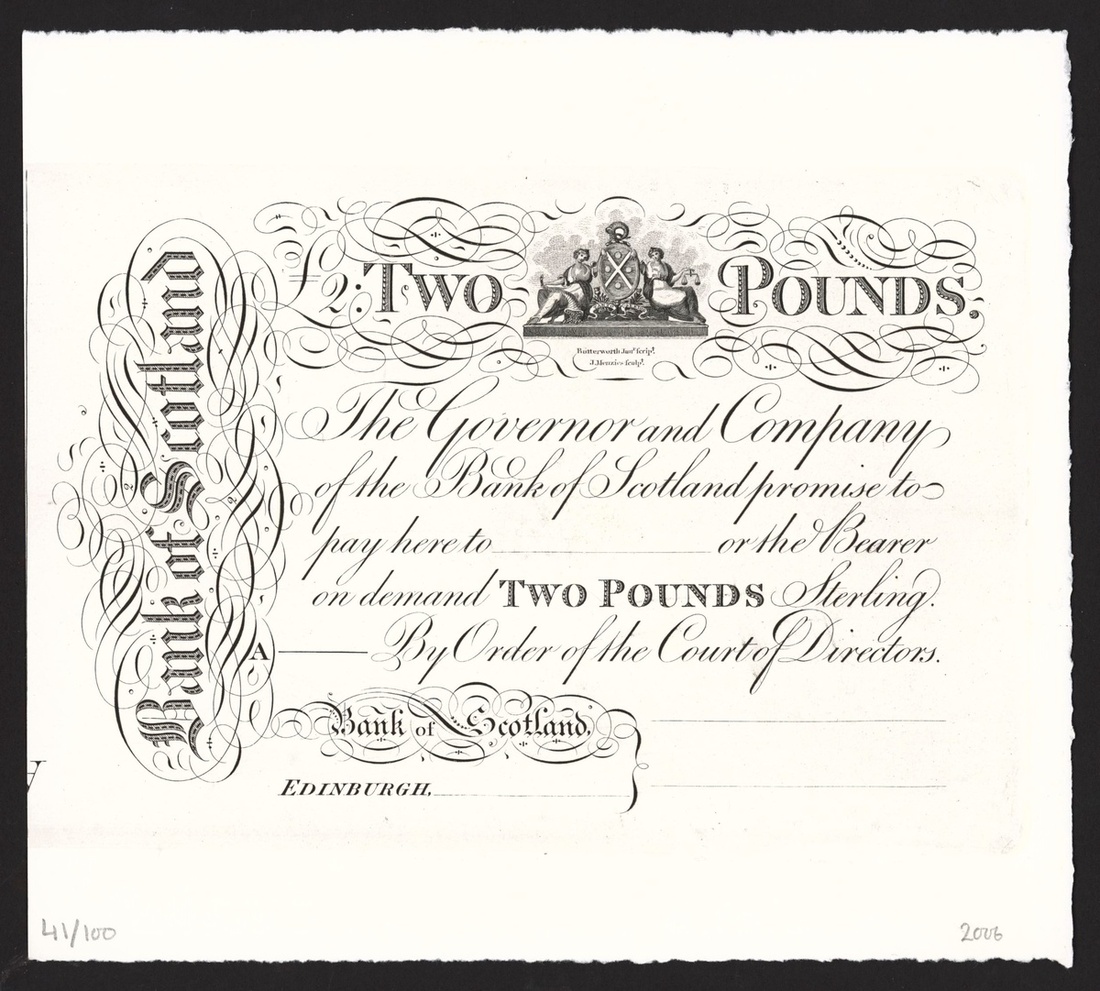 Bank of Scotland
£2: TWO POUNDS.
Butterworth Junr. script.
J. Menzies sculpt.
The Governor and Company
of the Bank of Scotland promise to
pay here to or the Bearer
on demand TWO POUNDS Sterling.
A By Order of the Court of Directors.
Bank of Scotland,
EDINBURGH,
41/100
2006